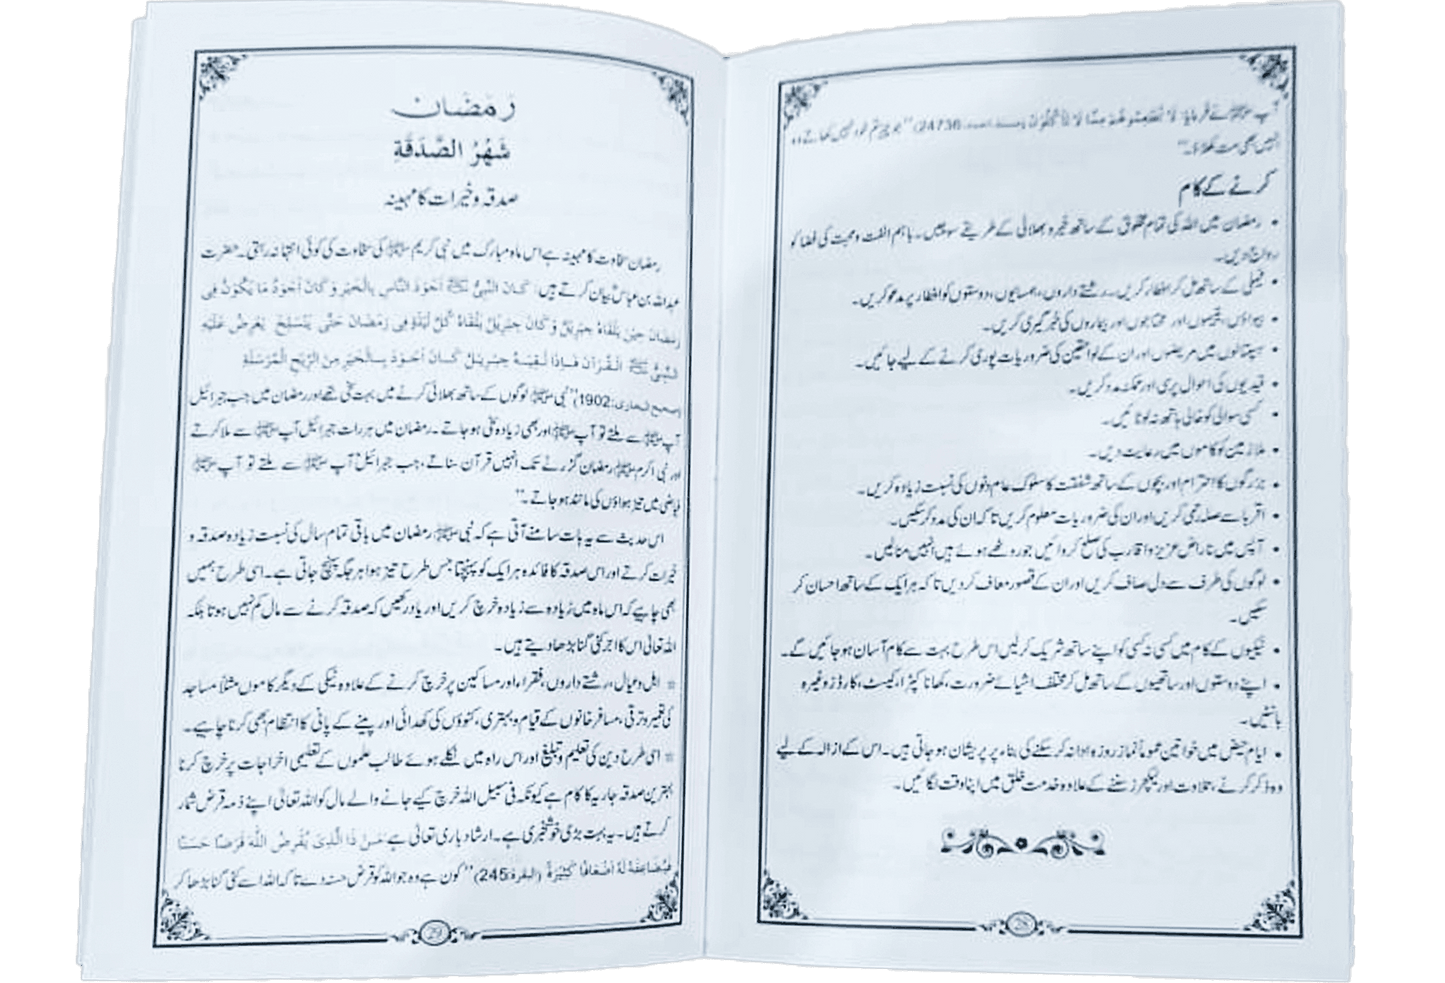 آپ ﷺ نے فرمایا: لَا تُطْعِمُوهُمْ مِمَّا لَا تَأْكُلُونَ (مسند احمد: 24736) ’’جو چیز تم خود نہیں کھاتے وہ
انہیں بھی مت کھلاؤ۔‘‘
کرنے کے کام
• رمضان میں اللہ کی تمام مخلوق کے ساتھ خیر و بھلائی کے طریقے سوچیں۔ باہم الفت و محبت کی فضا کو
رواج دیں۔
• فیملی کے ساتھ مل کر افطار کریں۔ رشتے داروں، ہمسایوں، دوستوں کو افطار پر مدعو کریں۔
• بیواؤں، یتیموں اور محتاجوں اور بیماروں کی خبر گیری کریں۔
• ہسپتالوں میں مریضوں اور ان کے لواحقین کی ضروریات پوری کرنے کے لیے جائیں۔
• قیدیوں کی احوال پرسی اور ممکنہ مدد کریں۔
• کسی سوالی کو خالی ہاتھ نہ لوٹائیں۔
• ملازمین کو کاموں میں رعایت دیں۔
• بزرگوں کا احترام اور بچوں کے ساتھ شفقت کا سلوک عام دنوں کی نسبت زیادہ کریں۔
• اقربا سے صلہ رحمی کریں اور ان کی ضروریات معلوم کریں تاکہ ان کی مدد کر سکیں۔
• آپس میں ناراض عزیز و اقارب کی صلح کروائیں جو روٹھے ہوئے ہیں انہیں منا لیں۔
• لوگوں کی طرف سے دل صاف کریں اور ان کے قصور معاف کر دیں تاکہ ہر ایک کے ساتھ احسان کر
سکیں۔
• نیکیوں کے کام میں کسی نہ کسی کو اپنے ساتھ شریک کر لیں اس طرح بہت سے کام آسان ہو جائیں گے۔
• اپنے دوستوں اور ساتھیوں کے ساتھ مل کر مختلف اشیائے ضرورت، کھانا، کپڑا، کیسٹ، کارڈز وغیرہ
بانٹیں۔
• ایام حیض میں خواتین عموماً نماز روزہ ادا نہ کر سکنے کی بناء پر پریشان ہو جاتی ہیں۔ اس کے ازالہ کے لیے
وہ ذکر کرنے، تلاوت اور لیکچرز سننے کے علاوہ خدمت خلق میں اپنا وقت لگائیں۔
28
رَمَضَان
شَهْرُ الصَّدَقَةِ
صدقہ و خیرات کا مہینہ
رمضان سخاوت کا مہینہ ہے اس ماہ مبارک میں نبی کریم ﷺ کی سخاوت کی کوئی انتہا نہ رہتی۔ حضرت
عبداللہ بن عباسؓ بیان کرتے ہیں: كَانَ النَّبِيُّ ﷺ أَجْوَدَ النَّاسِ بِالْخَيْرِ وَكَانَ أَجْوَدُ مَا يَكُوْنُ فِي
رَمَضَانَ حِيْنَ يَلْقَاهُ جِبْرِيْلُ وَكَانَ جِبْرِيْلُ يَلْقَاهُ كُلَّ لَيْلَةٍ فِي رَمَضَانَ حَتَّى يَنْسَلِخَ يَعْرِضُ عَلَيْهِ
النَّبِيُّ ﷺ الْقُرْآنَ فَإِذَا لَقِيَهُ جِبْرِيْلُ كَانَ أَجْوَدَ بِالْخَيْرِ مِنَ الرِّيْحِ الْمُرْسَلَةِ
(صحیح البخاری: 1902) ’’نبی ﷺ لوگوں کے ساتھ بھلائی کرنے میں بہت سخی تھے اور رمضان میں جب جبرائیل
آپ ﷺ سے ملتے تو آپ ﷺ اور بھی زیادہ سخی ہو جاتے۔ رمضان میں ہر رات جبرائیل آپ ﷺ سے ملا کرتے
اور نبی اکرم ﷺ رمضان گزرنے تک انہیں قرآن سناتے، جب جبرائیل آپ ﷺ سے ملتے تو آپ ﷺ
فیاضی میں تیز ہواؤں کی مانند ہو جاتے۔‘‘
اس حدیث سے یہ بات سامنے آتی ہے کہ نبی ﷺ رمضان میں باقی تمام سال کی نسبت زیادہ صدقہ و
خیرات کرتے اور اس صدقہ کا فائدہ ہر ایک کو پہنچتا جس طرح تیز ہوا ہر جگہ پہنچ جاتی ہے۔ اسی طرح ہمیں
بھی چاہیے کہ اس ماہ میں زیادہ سے زیادہ خرچ کریں اور یاد رکھیں کہ صدقہ کرنے سے مال کم نہیں ہوتا بلکہ
اللہ تعالیٰ اس کا اجر کئی گنا بڑھا دیتے ہیں۔
☆ اہل و عیال، رشتے داروں، فقراء اور مساکین پر خرچ کرنے کے علاوہ نیکی کے دیگر کاموں مثلاً مساجد
کی تعمیر و ترقی، مسافر خانوں کے قیام و بہتری، کنوؤں کی کھدائی اور پینے کے پانی کا انتظام بھی کرنا چاہیے۔
☆ اسی طرح دین کی تعلیم و تبلیغ اور اس راہ میں نکلے ہوئے طالب علموں کے تعلیمی اخراجات پر خرچ کرنا
بہترین صدقہ جاریہ کا کام ہے کیونکہ فی سبیل اللہ خرچ کیے جانے والے مال کو اللہ تعالیٰ اپنے ذمہ قرض شمار
کرتے ہیں۔ یہ بہت بڑی خوشخبری ہے۔ ارشاد باری تعالیٰ ہے مَنْ ذَا الَّذِي يُقْرِضُ اللهَ قَرْضًا حَسَنًا
فَيُضَاعِفَهُ لَهُ أَضْعَافًا كَثِيْرَةً (البقرة: 245) ’’کون ہے وہ جو اللہ کو قرض حسنہ دے تاکہ اللہ اسے کئی گنا بڑھا کر
29